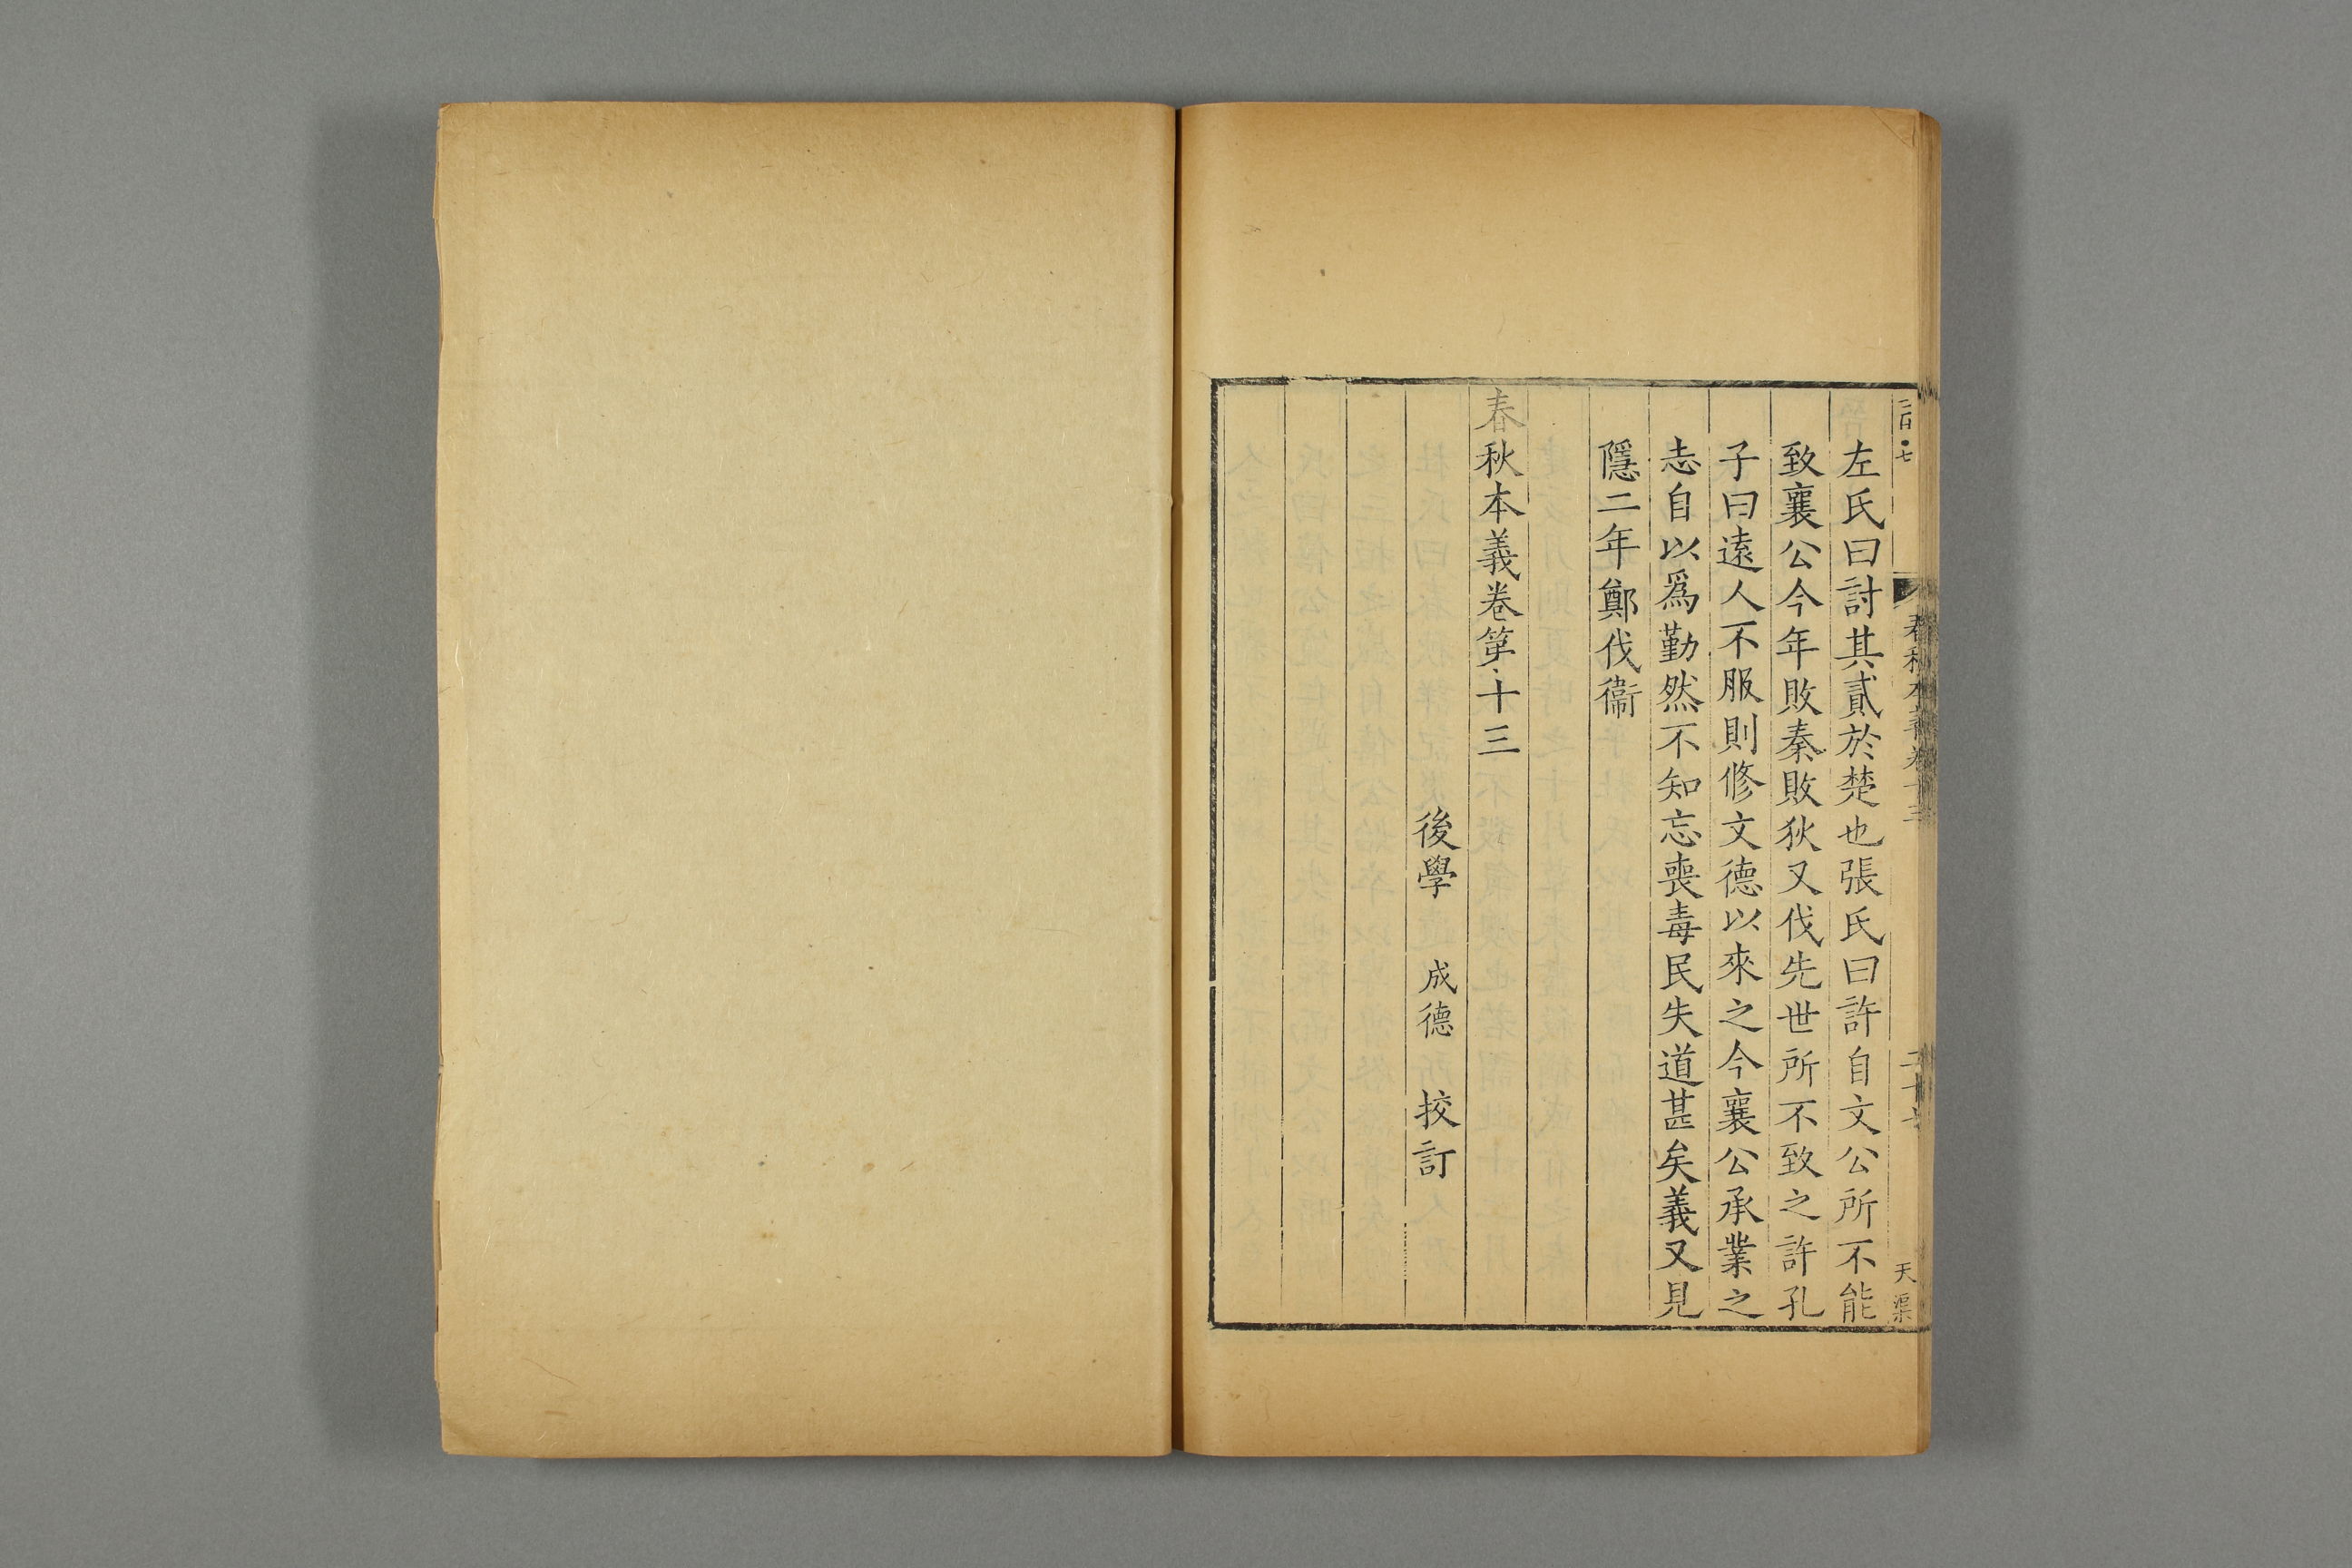 左氏曰討其貳於楚也張氏曰許自文公所不能
致襄公今年敗秦敗狄又伐先世所不致之許孔
子曰遠人不服則修文德以來之今襄公承業之
志自以爲勤然不知忘喪毒民失道甚矣義又見
隱二年鄭伐衞
春秋本義卷第十三
後學 成德 校訂
春秋本義卷十三
天
渠